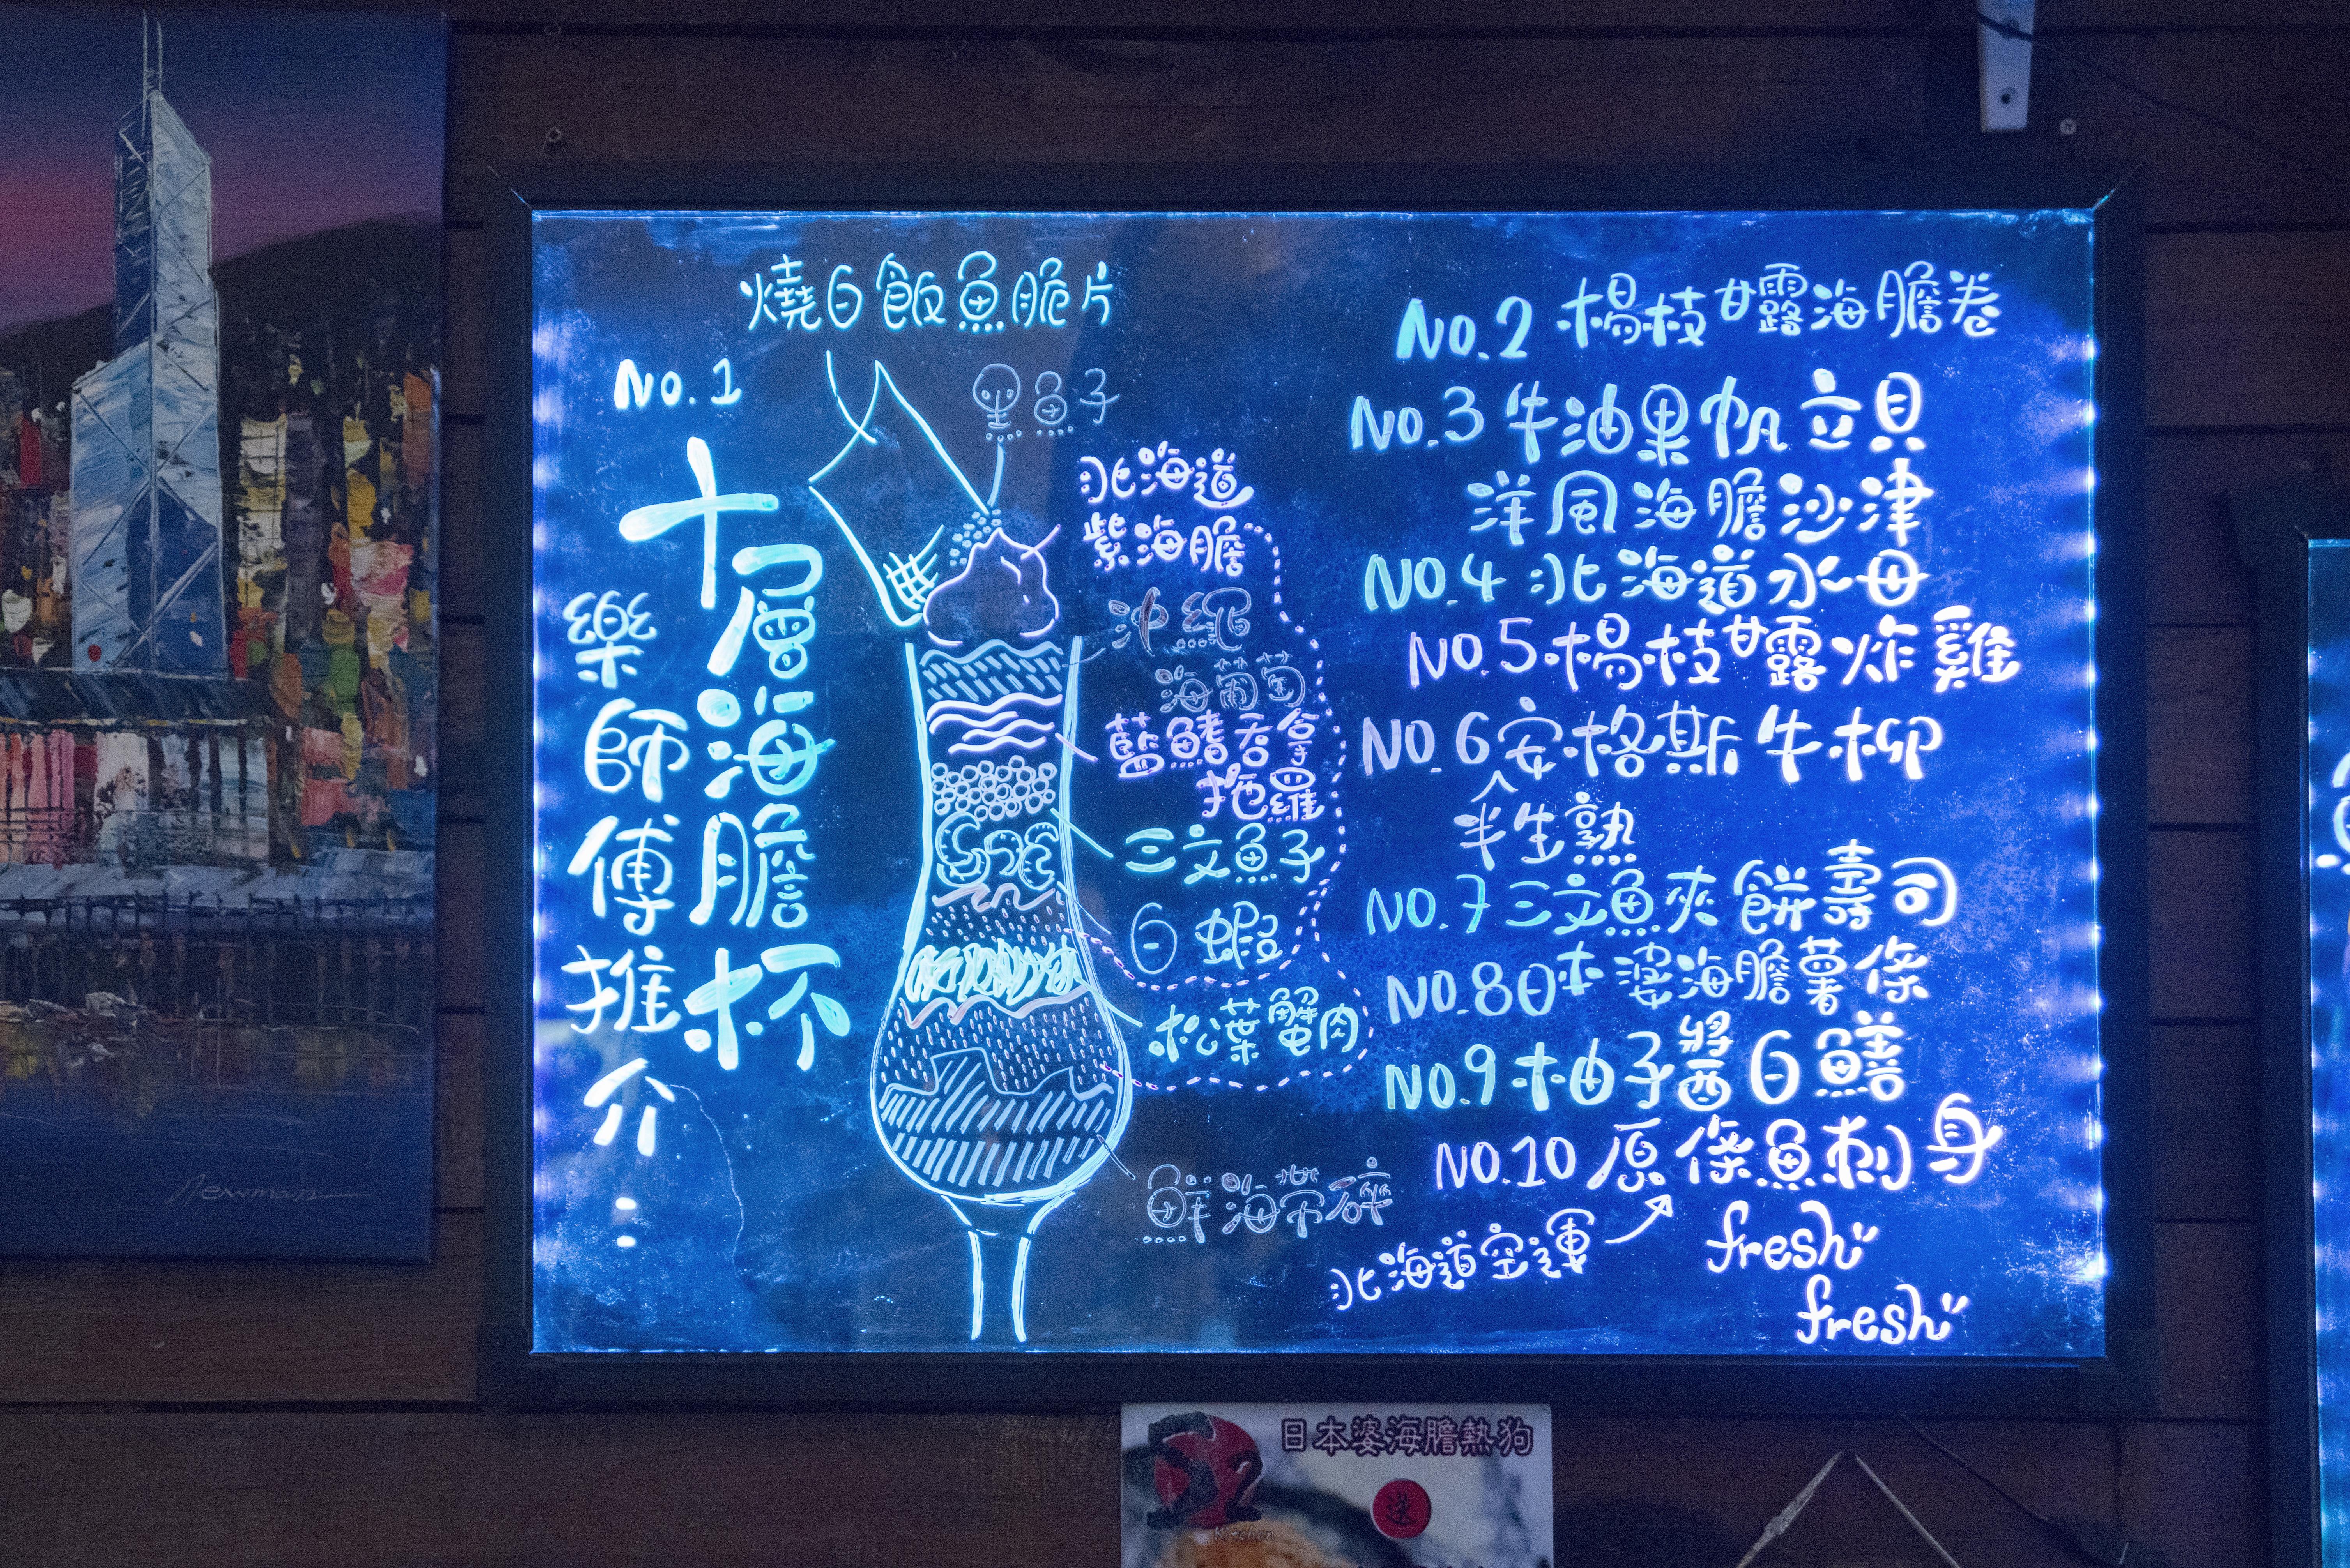 燒白飯魚脆片
No.1
十層海膽杯
樂師傅推介:
魚子
北海道
紫海膽
沖繩
海葡萄
藍鰭吞拿
拖羅
三文魚子
白蝦
松葉蟹肉
鮮海帶碎
No.2 楊枝甘露海膽卷
No.3 牛油果帆立貝
洋風海膽沙津
No.4 北海道水母
No.5 楊枝甘露炸雞
No.6 安格斯牛柳
半生熟
No.7 三文魚夾餅壽司
No.8 日本婆海膽薯條
No.9 柚子醬白鱔
No.10 原條魚刺身
北海道空運
fresh
fresh
Newman
日本婆海膽熱狗
送
Kitchen